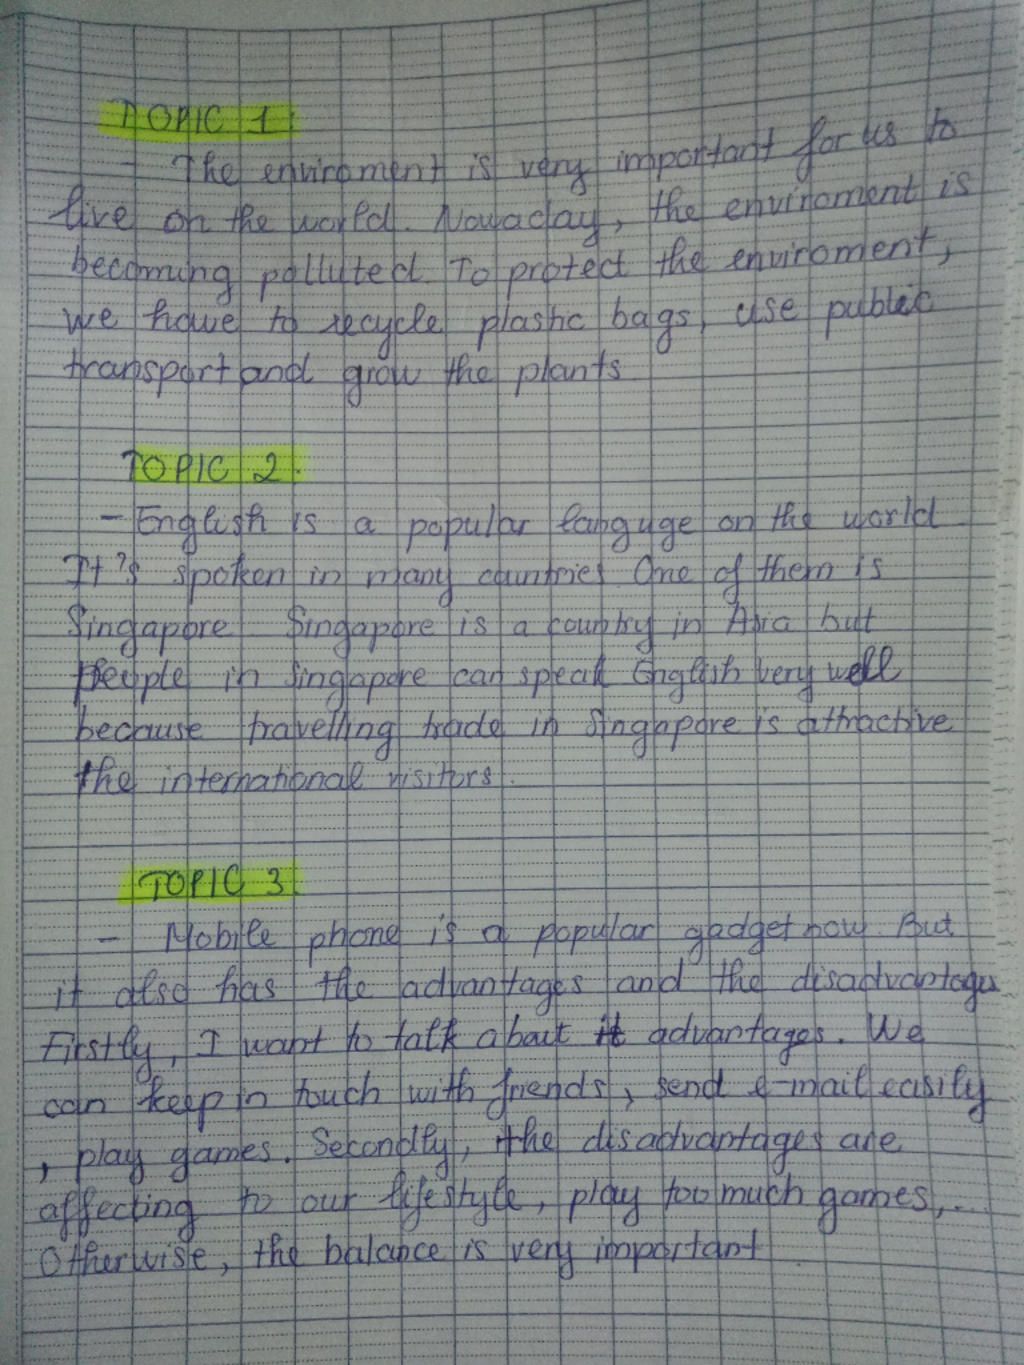 TOPIC 1:
- The enviroment is very important for us to
live on the world. Nowaday, the enviroment is
becoming polluted. To protect the enviroment,
we have to recycle plastic bags, use public
transport and grow the plants
TOPIC 2:
- English is a popular languge on the world
It's spoken in many countries. One of them is
Singapore. Singapore is a country in Asia but
people in Singapore can speak English very well
because travelling trade in Singapore is attractive
the international visitors.
TOPIC 3:
- Mobile phone is a popular gadget now. But
it also has the advantages and the disadvantages
Firstly, I want to talk about it advantages. We
can keep in touch with friends, send e-mail easily
, play games. Secondly, the disadvantages are
affecting to our lifestyle, play too much games,...
Otherwise, the balance is very important